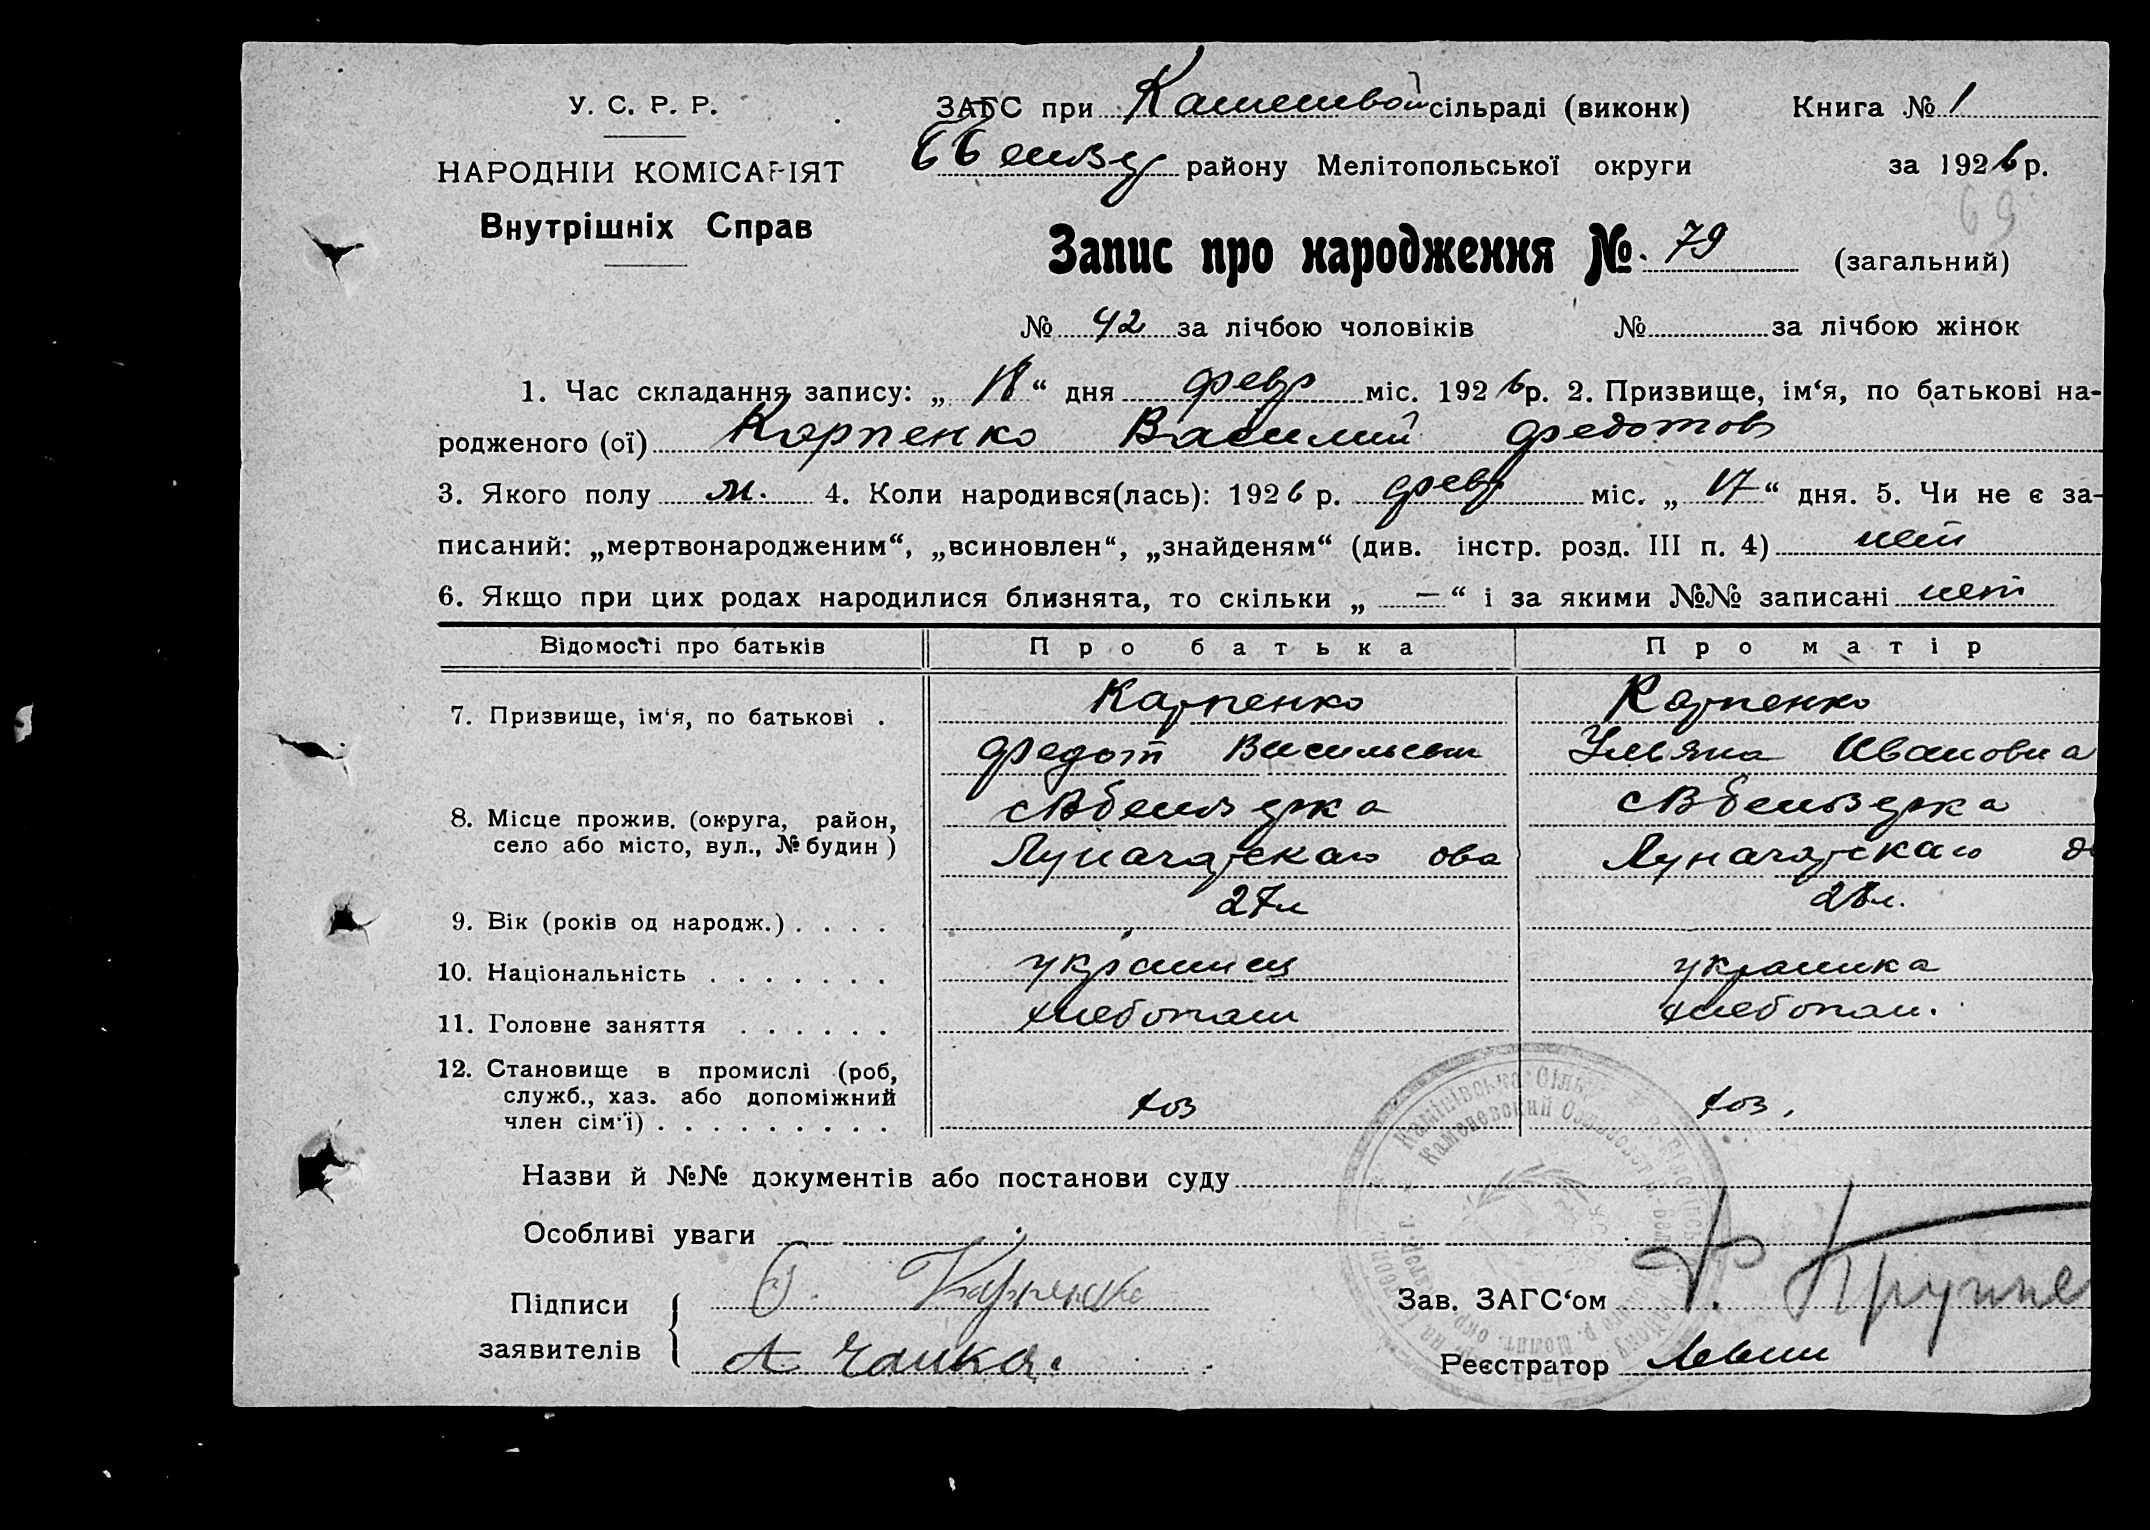 У. С. Р. Р.
НАРОДНІЙ КОМІСАРІЯТ
Внутрішніх Справ
ЗАГС при сільраді (виконк) Книга № 1
району Мелітопольської округи за 1926 р.
69
Запис про народження № 79 (загальний)
№ 42 за лічбою чоловіків № за лічбою жінок
1. Час складання запису: „ 18 “ дня февр міс. 1926 р. 2. Призвище, ім‘я, по батькові на-
родженого (ої) Карпенко Василий Федотов
3. Якого полу м. 4. Коли народився(лась): 1926 р. февр міс. „ 17 “ дня. 5. Чи не є за-
писаний: „мертвонародженим“, „всиновлен“, „знайденям“ (див. інстр. розд. III п. 4) нет
6. Якщо при цих родах народилися близнята, то скільки „ — “ і за якими №№ записані нет
Відомості про батьків Про батька Про матір
7. Призвище, ім‘я, по батькові . Карпенко Карпенко
Федот Васильев Ульяна Ивановна
8. Місце прожив. (округа, район,
село або місто, вул., № будин)
Луначарскаго Луначарскаго
9. Вік (років од народж.) . . . . 27 л 28 л.
10. Національність . . . . . . . украинец украинка
11. Головне заняття . . . . . . хлебопаш хлебопаш.
12. Становище в промислі (роб,
служб., хаз. або допоміжний
член сім‘ї) . . . . . . . . . хоз хоз.
Камінівська Сільр
Каменевский
Назви й №№ документів або постанови суду
Особливі уваги
Підписи Карпенко Зав. ЗАГС‘ом
заявителів А Чайка. Реєстратор